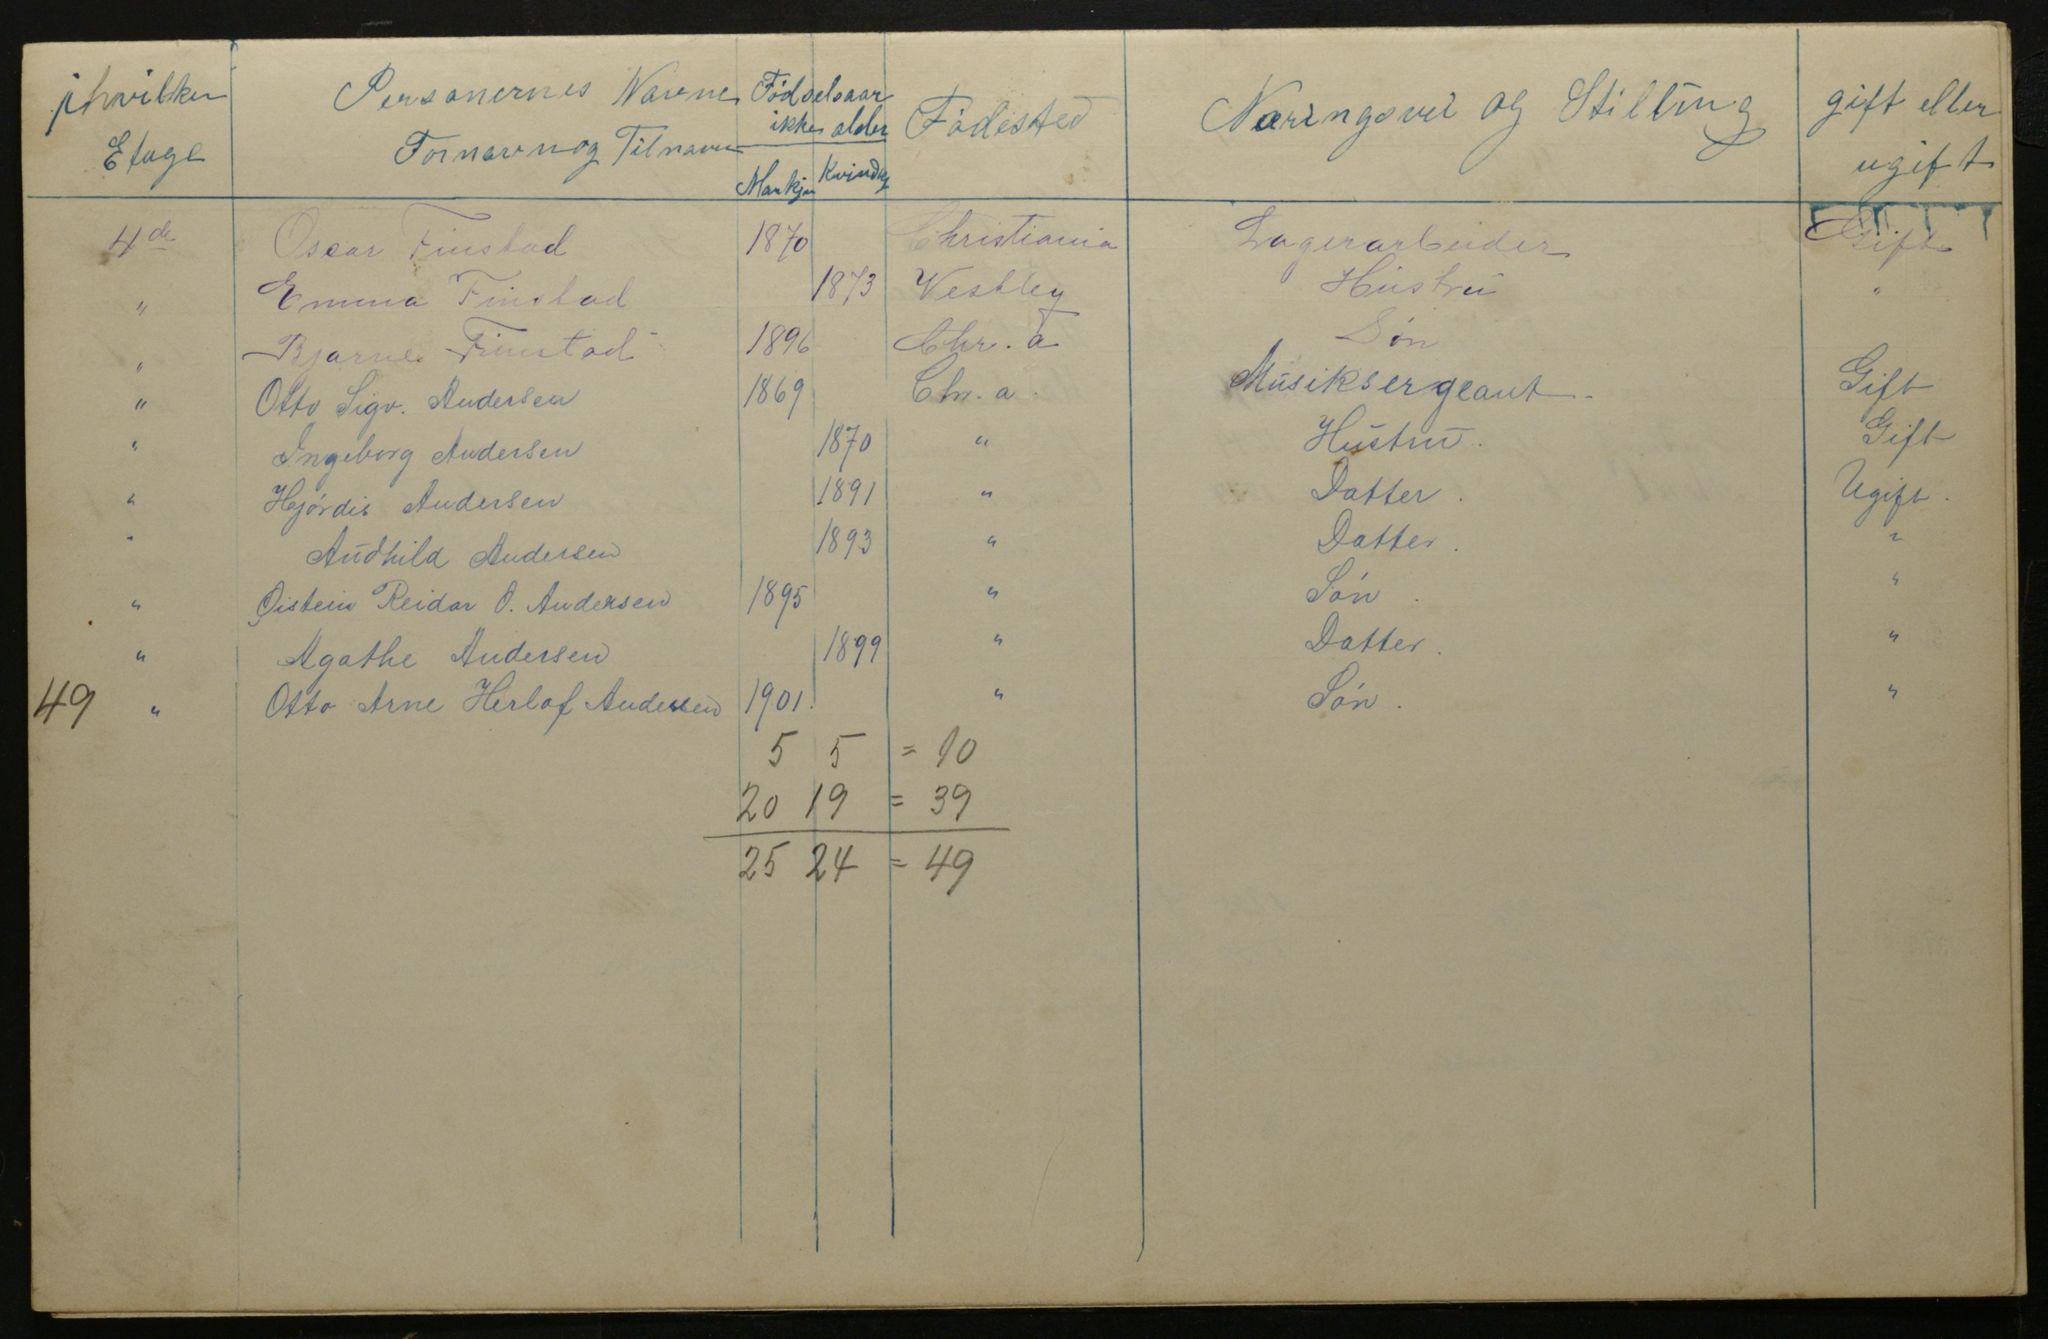 i hvilken Personernes Navne Fødselsaar Fødested Næringsvei og Stilling gift eller
Etage Fornavn og Tilnavn ikke alder ugift
Mankjn Kvindkj
4de Oscar Finstad 1870 Christiania Lagerarbeider Gift
" Emma Finstad 1873 Vestby Hustru "
" Bjarne Finstad 1896 Chr.a Søn
" Otto Sigv. Andersen 1869 Chr.a. Musiksergeant. Gift
" Ingeborg Andersen 1870 " Hustru. Gift
" Hjørdis Andersen 1891 " Datter. Ugift.
" Audhild Andersen 1893 " Datter. "
" Øistein Reidar O. Andersen 1895 " Søn. "
" Agathe Andersen 1899 " Datter. "
49 " Otto Arne Herlof Andersen 1901. " Søn. "
5 5 = 10
20 19 = 39
25 24 = 49